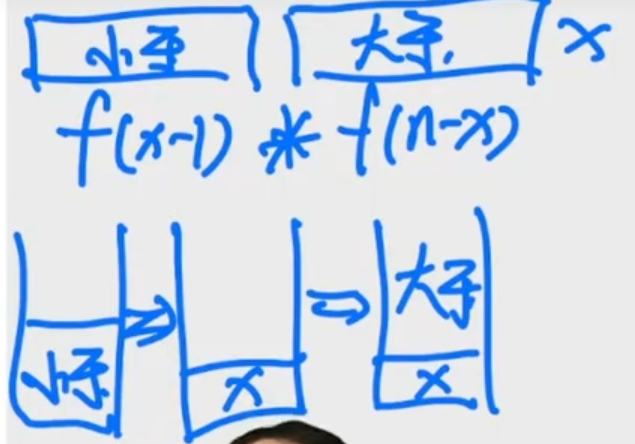 小于 大于 x
f(x-1) * f(n-x)
小于 x 大于
x